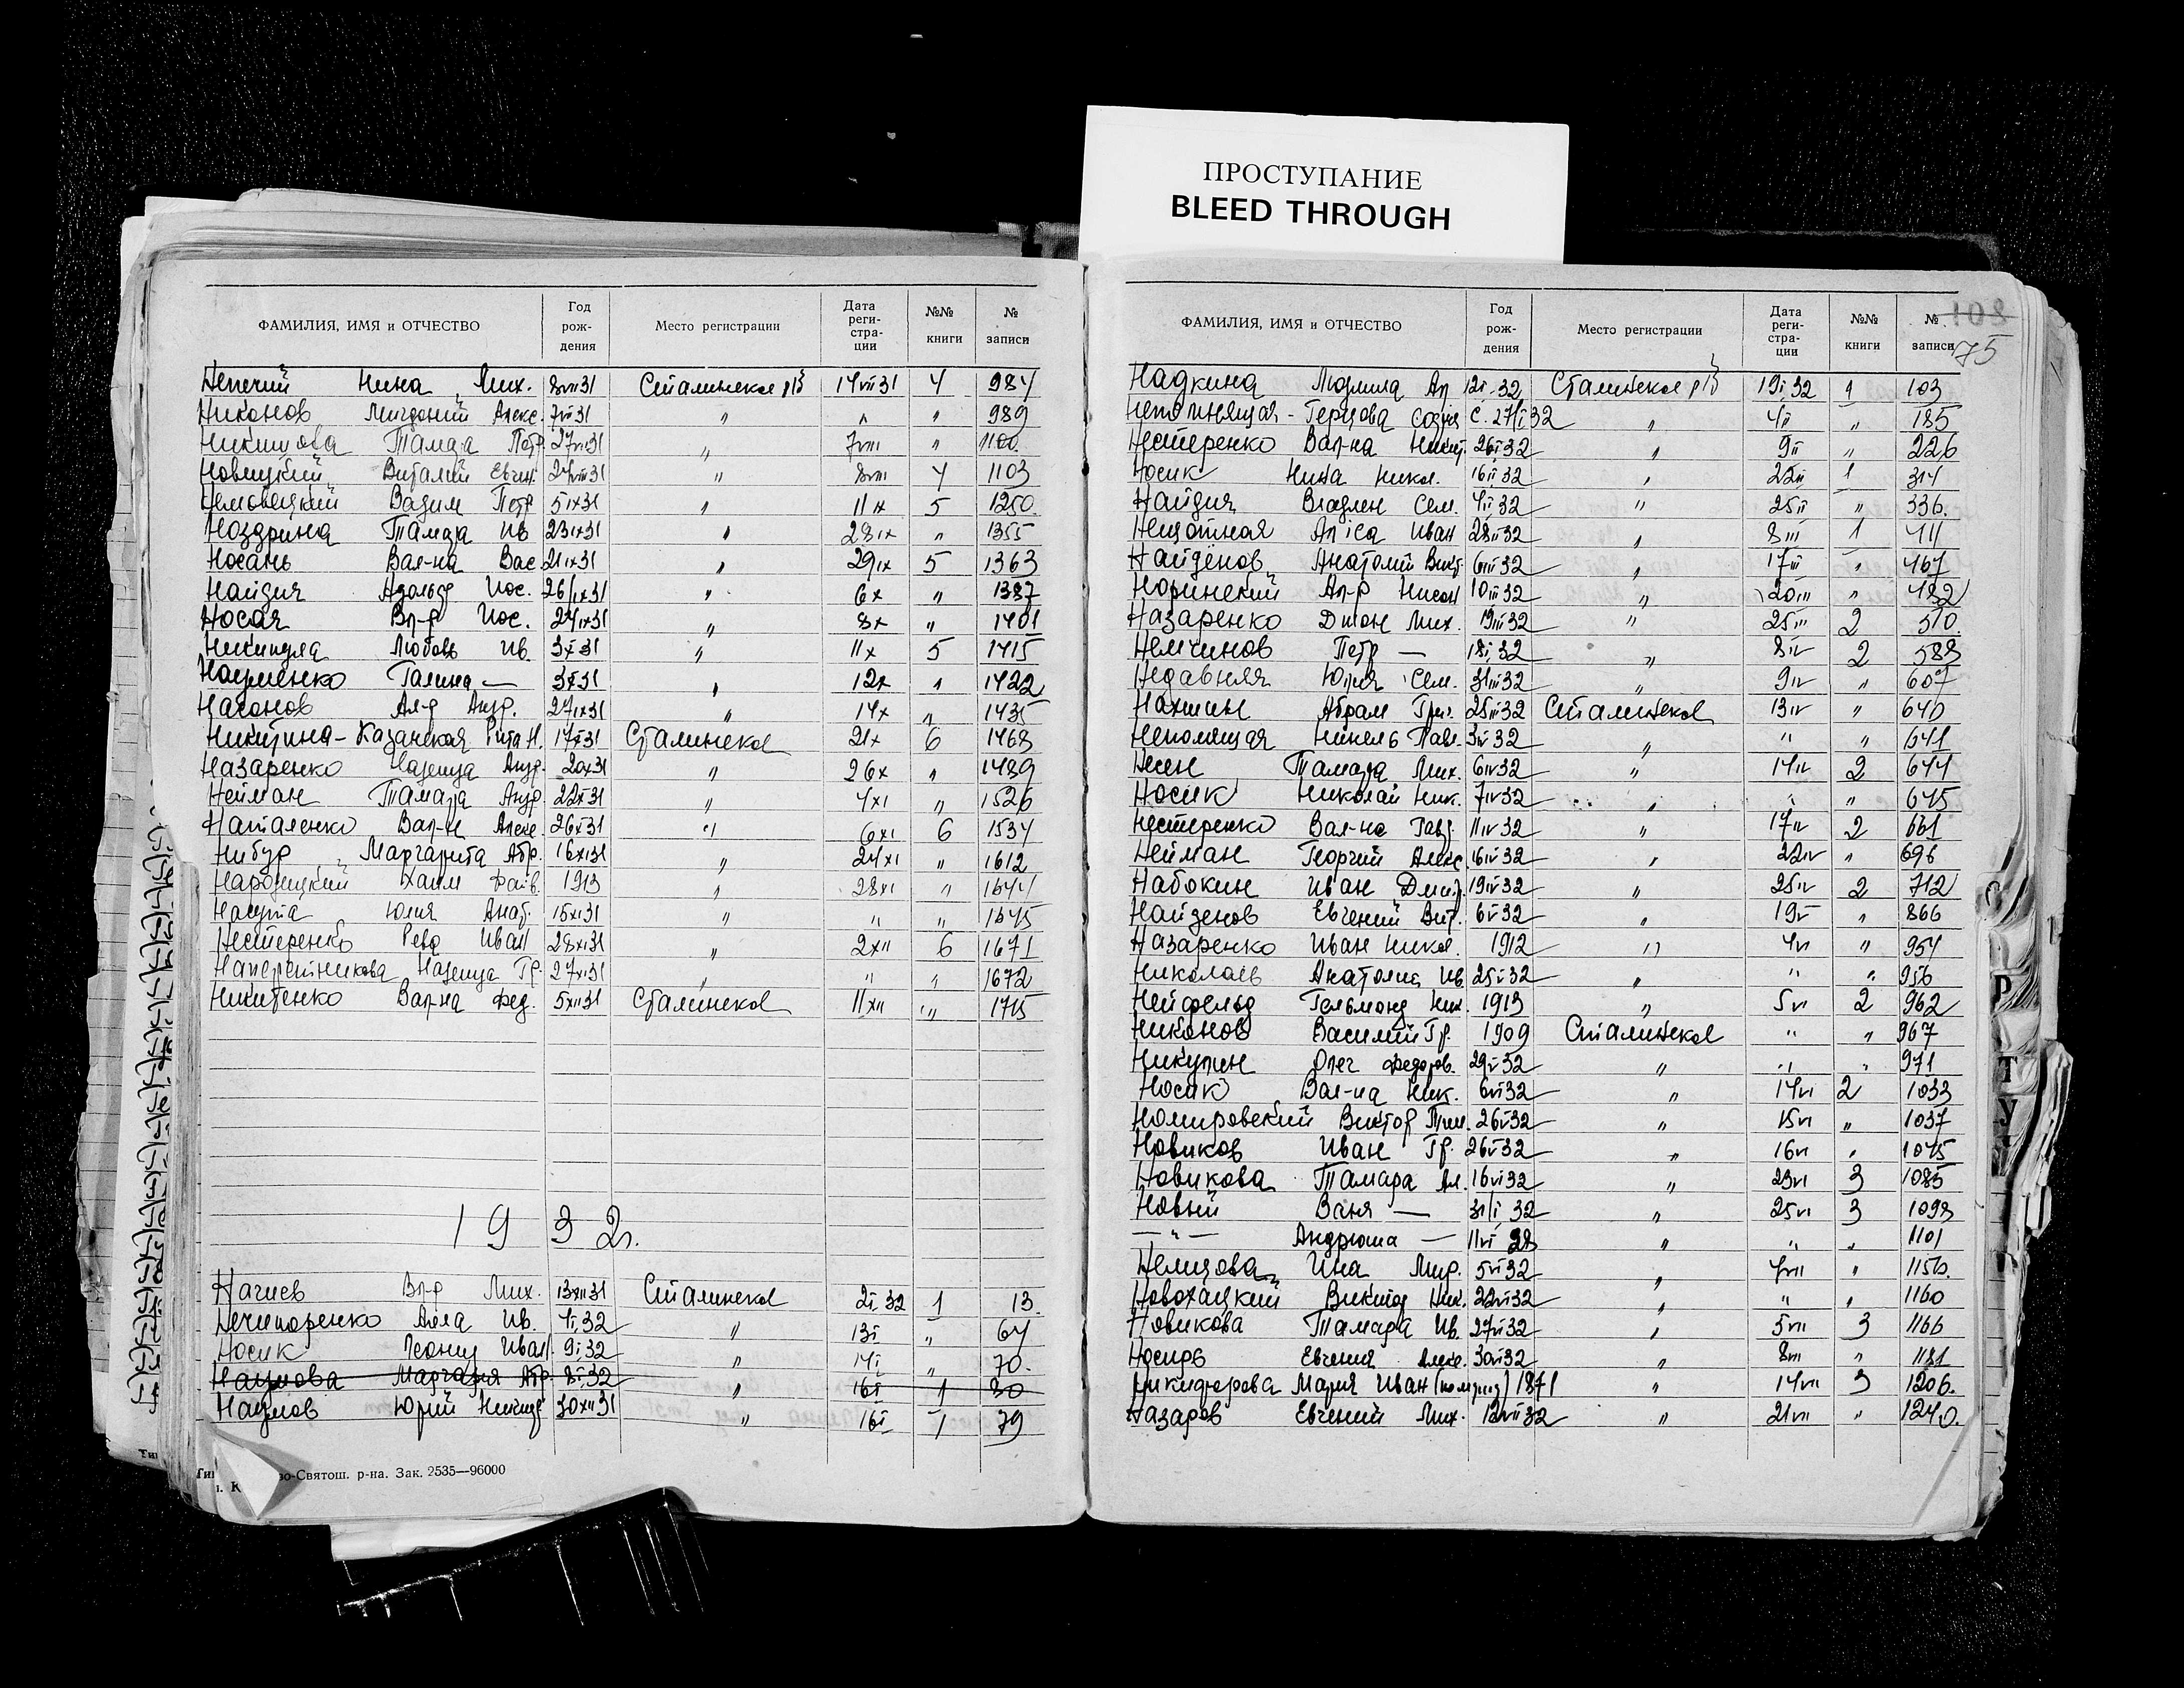 ПРОСТУПАНИЕ
BLEED THROUGH
ФАМИЛИЯ, ИМЯ и ОТЧЕСТВО Год рождения Место регистрации Дата регистрации №№ книги № записи
Нина Мих. 8VII31 Сталинское р/б 14VII31 4 984
Никонов Алекс. 7VII31 " " " 989
Тамара Петр. 27VI31 " 7VIII " 1100
Новицкий Виталий Евген. " 8VIII 4 1103
Вадим Петр. 5IX31 " 11IX 5 1250
Ноздрина Тамара Ив. 23IX31 " 28IX " 1355
Носань Вал-на Вас. 21IX31 " 29IX 5 1363
Найдич Адольф Иос. 26/IX31 " 6X " 1387
Носая Вл-р Иос. 24IX31 " 8X " 1401
Любовь Ив. 3X31 " 11X 5 1415
Науменко Галина — 3X31 " 12X " 1422
Насонов Ал-р Андр. 27IX31 " 14X " 1435
Никитина-Казанская Рита Н. 17X31 Сталинское 21X 6 1468
Назаренко Надежда Андр. 20X31 " 26X " 1489
Нейман Тамара Андр. 22X31 " 4XI " 1526
Наталенко Вал-н Алекс. 26X31 " 6XI 6 1534
Нибур Маргарита Абр. 16XI31 " 24XI " 1612
Народицкий Хаим Файв. 1913 " 28XI " 1644
Юлия Анат. 15XI31 " " " 1645
Нестеренко Рева Иван 28XI31 " 2XII 6 1671
Надежда Гр. 27XI31 " " " 1672
Никитенко Вал-на Фед. 5XII31 Сталинское 11XII " 1715
1932 г.
Нагиев Вл-р Мих. 13XII31 Сталинское 2I32 1 13
Нечипоренко Алла Ив. 4I32 " 13I " 64
Носик Леонид Иван 9I32 " 14I " 70
Наумова Абр. 8I32 " 16I 1 80
Наумов Юрий 30XII31 " 16I 1 79
-Святош. р-на. Зак. 2535—96000
ФАМИЛИЯ, ИМЯ и ОТЧЕСТВО Год рождения Место регистрации Дата регистрации №№ книги № записи
201
75
Надкина Людмила Ал. 12I32 Сталинское р/б 19I32 1 103
Непомнящая-Герцова София С. 27/I32 " 4II " 185
Нестеренко Вал-на 26I32 " 9II " 226
Носик Нина Никол. 16II32 " 22II 1 314
Найдич Владлен Сем. 4II32 " 25II " 336
Иван 28II32 " 8III 1 411
Найдёнов Анатолий Викт. 6III32 " 17III " 467
Норинский Ал-р Нисон 10III32 " 20III " 482
Назаренко Дион Мих. 19III32 " 25III 2 510
Немчинов Петр — 18I32 " 8IV 2 588
Недавняя Юлия Сем. 31III32 " 9IV " 607
Нахшин Абрам Григ. 25III32 Сталинское 13IV " 640
Непомящая Нинель Павл. 3IV32 " " " 641
Тамара Мих. 6IV32 " 14IV 2 644
Носик Николай Ник. 7IV32 " " " 645
Нестеренко Вал-на Гавр. 11IV32 " 17IV 2 661
Нейман Георгий Алекс. 16IV32 " 22IV " 696
Набокин Иван Дмитр. 19IV32 " 25IV 2 712
Найденов Евгений Вит. 6V32 " 19V " 866
Назаренко Иван Никол. 1912 " 4VI " 954
Николаев Анатолий Ив. 25V32 " " " 956
Нейфельд Гельмонд Ник. 1913 " 5VI 2 962
Никонов Василий Гр. 1909 Сталинское " " 967
Никулин Олег Федоров. 29V32 " " " 971
Носик Вал-на Ник. 6VI32 " 14VI 2 1033
Номировский Виктор 26V32 " 15VI " 1037
Новиков Иван Гр. 26V32 " 16VI " 1045
Новикова Тамара Ал. 16VI32 " 23VI 3 1085
Новый Ваня — 31/I32 " 25VI 3 1098
—"— Андрюша — " " " 1101
Немцова Ина Мир. 5VI32 " 4VII " 1156
Новохацкий Виктор Ник. 22VI32 " " " 1160
Новикова Тамара Ив. 27VI32 " 5VII 3 1166
Носирь Евгения Алекс. 30VI32 " 8VII " 1181
Никифорова Мария Иван 1871 " 14VII 3 1206
Назаров Евгений Мих. 12VII32 " 21VII " 1240